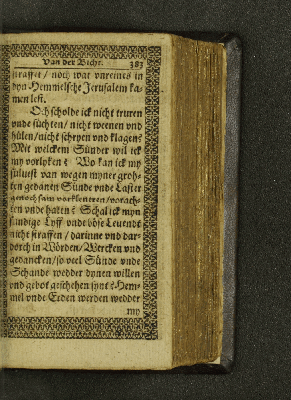 Van der Bicht. 383
straffet / noch wat vnreines in
dyn Hemmelsche Jerusalem ka-
men lest.
Och scholde ick nicht truren
vnde süchten / nicht weenen vnd
hülen / nicht schryen vnd klagen?
Mit welckem Sünder wil ick
my vorlyken? Wo kan ick my
süluest van wegen myner groh-
ten gedanen Sünde vnde Laster
genochsam vorkleneren / vorach-
ten vnde haten? Schal ick myn
sündige Lyff vndt böse Leuendt
nicht straffen / darinne vnd dar-
dorch in Wörden / Wercken vnd
gedancken / so veel Sünde vnde
Schande wedder dynen willen
vnd gebot geschehen synt? Hem-
mel vnde Erden werden wedder
my